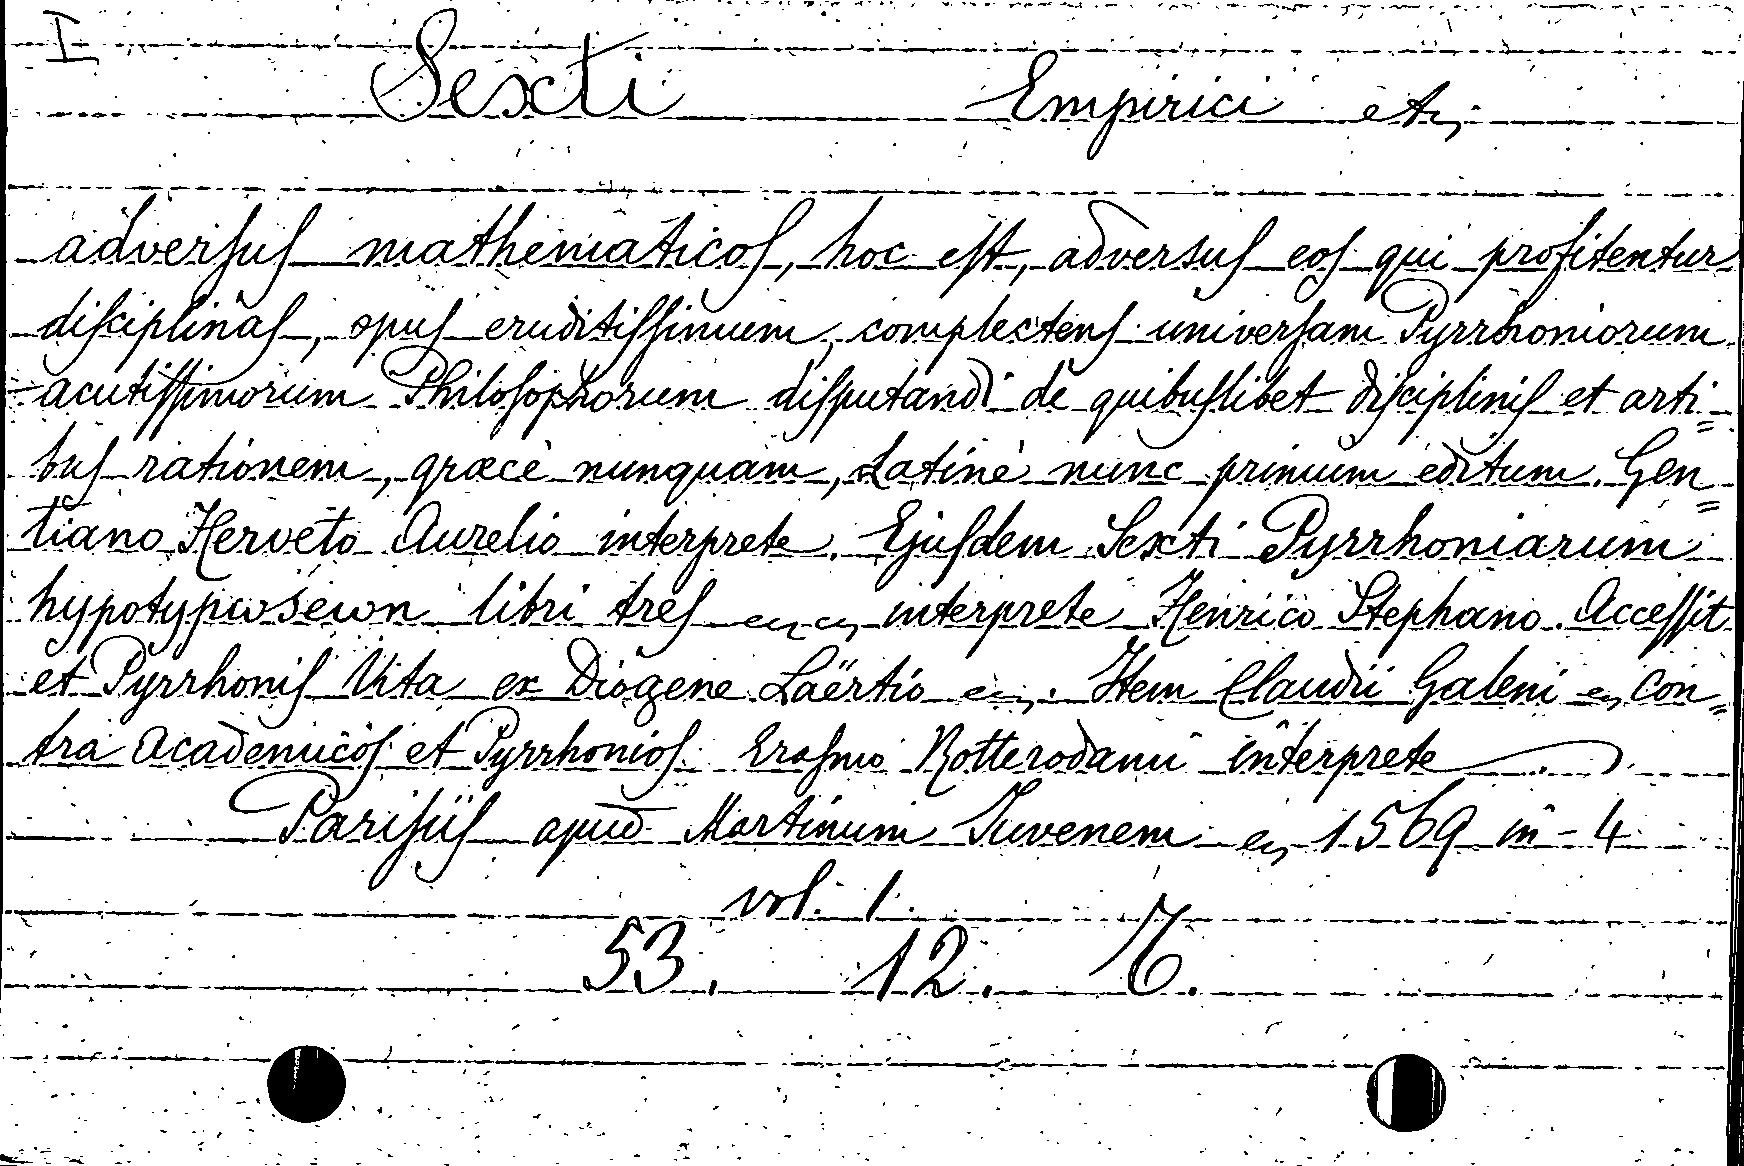 I
Sexti Empirici etc
adversus mathematicos, hoc est, adversus eos qui profitentur
disciplinas, opus eruditissimum, complectens universam Pyrrhoniorum
acutissimorum Philosophorum disputandi de quibuslibet disciplinis et arti=
bus rationem, græcè nunquam, Latinè nunc primum editum. Gen=
tiano Herveto Aurelio interprete. Ejusdem Sexti Pyrrhoniarum
hypotypωseωn libri tres interprete Henrico Stephano. Accessit
et Pyrrhonis Vita ex Diogene Laërtio. Item Claudii Galeni con=
tra Academicos et Pyrrhonios. Erasmo Rotterodami interprete
Parisiis apud Martinum Juvenem 1569 in-4
vol. 1.
53. 12. 7.